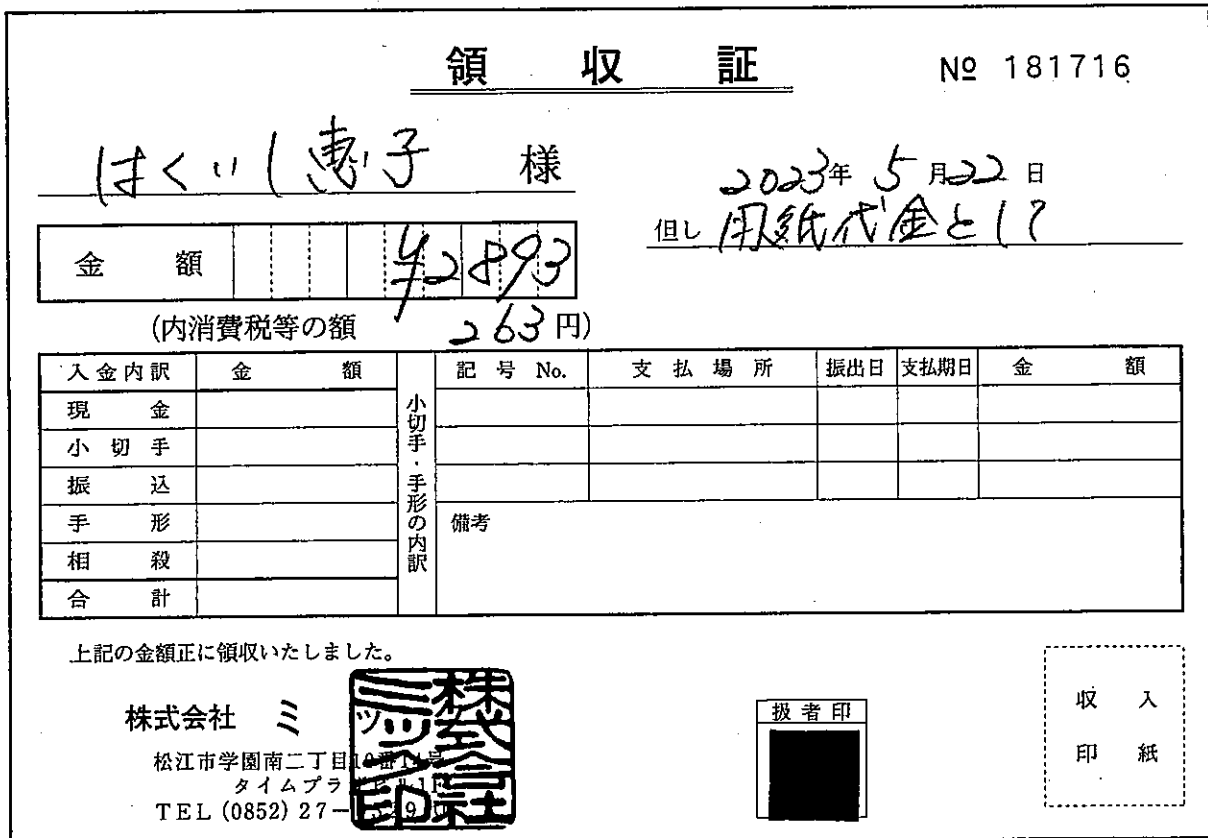 領収証
№ 181716
はくいし恵子 様
2023年 5月22日
但し 用紙代金として
金額 ¥2893
(内消費税等の額 263円)
入金内訳 金額
現金
小切手
振込
手形
相殺
合計
小切手・手形の内訳
記号 No. 支払場所 振出日 支払期日 金額
備考
上記の金額正に領収いたしました。
株式会社 ミ
松江市学園南二丁目
タイムプラ
TEL (0852) 27-
扱者印
収入
印紙